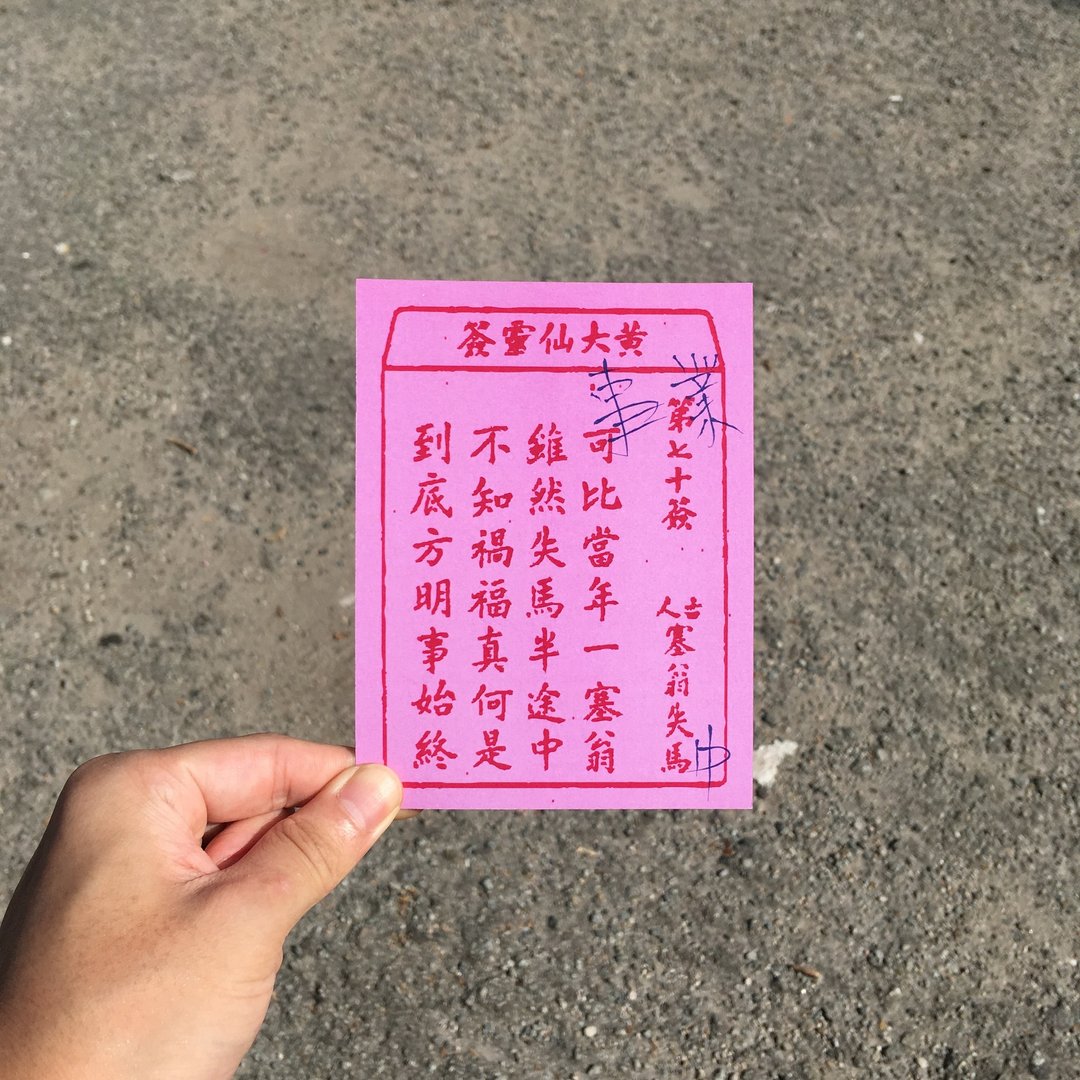 黄大仙靈簽
第七十簽
古人
塞翁失馬
可比當年一塞翁
雖然失馬半途中
不知禍福真何是
到底方明事始終
事業
中